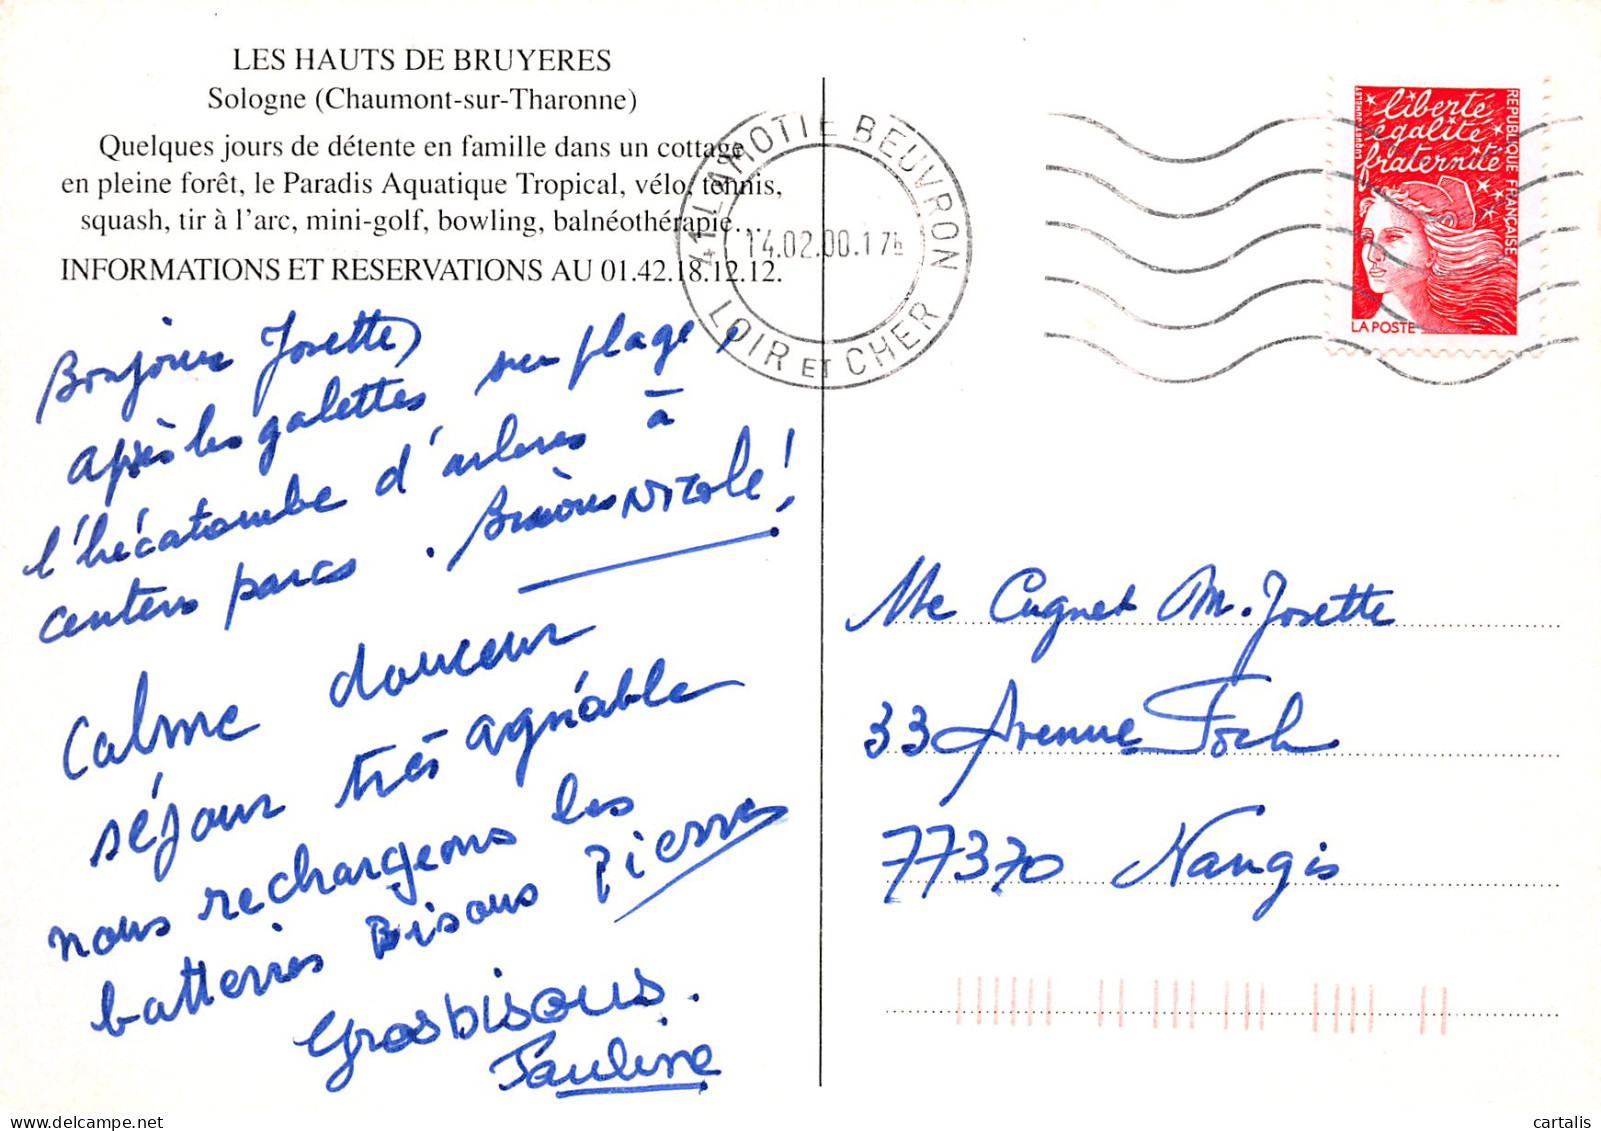 LES HAUTS DE BRUYERES
Sologne (Chaumont-sur-Tharonne)
Quelques jours de détente en famille dans un cottage
en pleine forêt, le Paradis Aquatique Tropical, vélo, tennis,
squash, tir à l'arc, mini-golf, bowling, balnéothérapie...
INFORMATIONS ET RESERVATIONS AU 01.42.18.12.12.
Bonjour Josette,
après les galettes sur plage,
l'hécatombe d'arbres à
centers parcs. Bisous NICOLE!
Calme douceur
séjour très agréable
nous rechargeons les
batteries Bisous Pierre
Gros bisous.
Pauline
41 LAMOTTE BEUVRON
14.02.00.17h
LOIR ET CHER
liberté
égalité
fraternité
REPUBLIQUE FRANÇAISE
LA POSTE
Me Cugnet M. Josette
33 Avenue Foch
77370 Nangis
cartalis